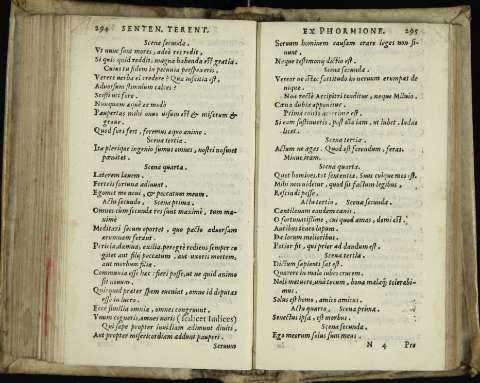 294 SENTEN. TERENT.
Scena secunda.
Vt nunc sunt mores, adeò res redit,
Si quis quid reddit, magna habenda est gratia.
Cuius tu fidem in pecunia perspexeris,
Verere verba ei credere? Qua inscitia est,
Aduorsum stimulum calces?
Scisti uti foro.
Nunquam aequè ac modò
Paupertas mihi onus uisum est & miserum &
graue.
Quod fors fert, feremus aequo animo.
Scena tertia.
Ita plerique ingenio sumus omnes, nostri nosmet
poenitet.
Scena quarta.
Laterem lauem.
Forteis fortuna adiuuat.
Egomet me noui, & peccatum meum.
Actu secundo, Scena prima.
Omneis cùm secundae res sunt maximè, tum ma-
ximè
Meditari secum oportet, quo pacto aduorsam
aerumnam ferant.
Pericla, damna, exilia, peregrè rediens semper co-
gitet aut filij peccatum, aut uxoris mortem,
aut morbum filiae.
Communia esse haec: fieri posse, ut ne quid animo
sit nouum.
Quicquid praeter spem eueniat, omne id deputare
esse in lucro.
Ecce similia omnia, omnes congruunt.
Vnum cognoris, omnes noris (scilicet iudices)
Qui saepe propter inuidiam adimunt diuiti,
Aut propter misericordiam addunt pauperi.
Seruum
EX PHORMIONE. 295
Seruum hominem causam orare leges non si-
nunt,
Neque testimonij dictio est.
Scena secunda.
Vereor ne istaec fortitudo in neruum erumpat de
nique.
Non rete Accipitri tenditur, neque Miluio.
Coena dubia apponitur.
Prima coitio acerrima est.
Si eam sustinueris, post illa iam, ut lubet, ludas
licet.
Scena tertia.
Actum ne agas. Quod est ferendum, feras.
Minue iram.
Scena quarta.
Quot homines, tot sententiae. Suus cuique mos est.
Mihi non uidetur, quod sit factum legibus,
Rescindi posse.
Actu tertio, Scena secunda.
Cantilenam eandem canis.
O fortunatissime, cui quod amas, domi est.
Auribus teneo lupum.
De locum melioribus.
Potior sit, qui prior ad dandum est.
Scena tertia.
Dictum sapienti sat est.
Quaerere in malo iubes crucem.
Noli metuere, unà tecum, bona mala tolerabi-
mus.
Solus est homo, amico amicus.
Actu quarto, Scena prima.
Senectus ipsa est morbus.
Scena secunda.
Ego meorum solus sum meus.
N 4 Pro